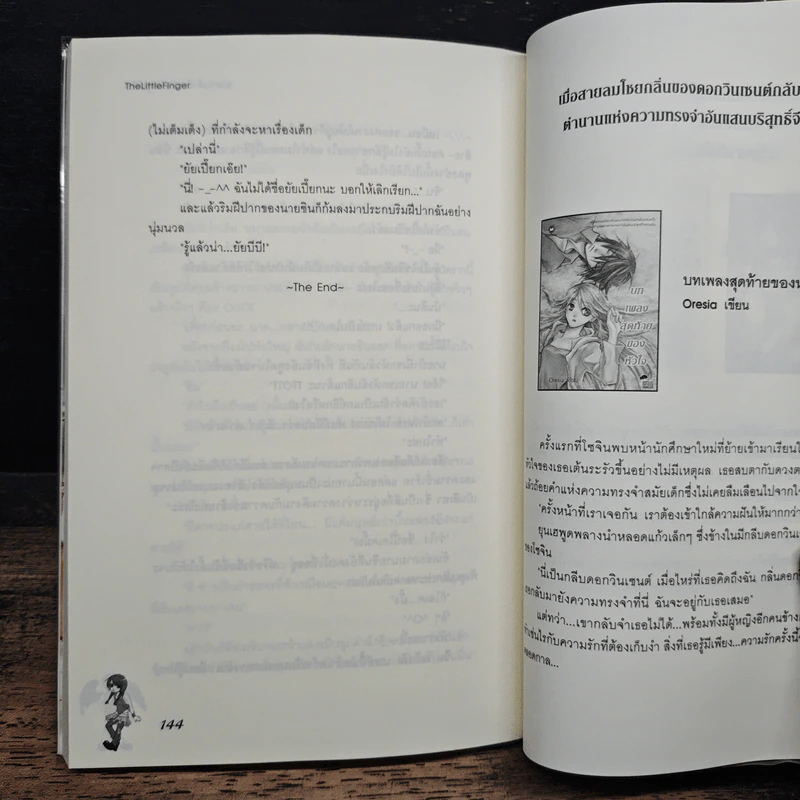 TheLittleFinger
(ไม่เต็มเต็ง) ที่กำลังจะหาเรื่องเด็ก
"เปล่านี่"
"ยัยเปี๊ยกเอ๊ย!"
"นี่! -_-^^ ฉันไม่ได้ชื่อยัยเปี๊ยกนะ บอกให้เลิกเรียก..."
และแล้วริมฝีปากของนายซินก็ก้มลงมาประกบริมฝีปากฉันอย่าง
นุ่มนวล
"รู้แล้วน่า...ยัยบีบี!"
~The End~
144
เมื่อสายลมโชยกลิ่นของดอกวินเซนต์กลับ
ตำนานแห่งความทรงจำอันแสนบริสุทธิ์จึ
บท
เพลง
สุดท้าย
ของ
หัวใจ
Oresia เขียน
บทเพลงสุดท้ายของห
Oresia เขียน
ครั้งแรกที่โซจินพบหน้านักศึกษาใหม่ที่ย้ายเข้ามาเรียนใ
หัวใจของเธอเต้นระรัวขึ้นอย่างไม่มีเหตุผล เธอสบตากับดวงต
แล้วถ้อยคำแห่งความทรงจำสมัยเด็กซึ่งไม่เคยลืมเลือนไปจากใ
"ครั้งหน้าที่เราเจอกัน เราต้องเข้าใกล้ความฝันให้มากกว่า
ยุนเฮพูดพลางนำหลอดแก้วเล็กๆ ซึ่งข้างในมีกลีบดอกวินเ
ของโซจิน
"นี่เป็นกลีบดอกวินเซนต์ เมื่อไหร่ที่เธอคิดถึงฉัน กลิ่นดอก
เธอกลับมายังความทรงจำที่นี่ ฉันจะอยู่กับเธอเสมอ"
แต่ทว่า...เขากลับจำเธอไม่ได้...พร้อมทั้งมีผู้หญิงอีกคนข้างก
ทำเช่นไรกับความรักที่ต้องเก็บงำ สิ่งที่เธอรู้มีเพียง...ความรักครั้งนี้
ตลอดกาล...